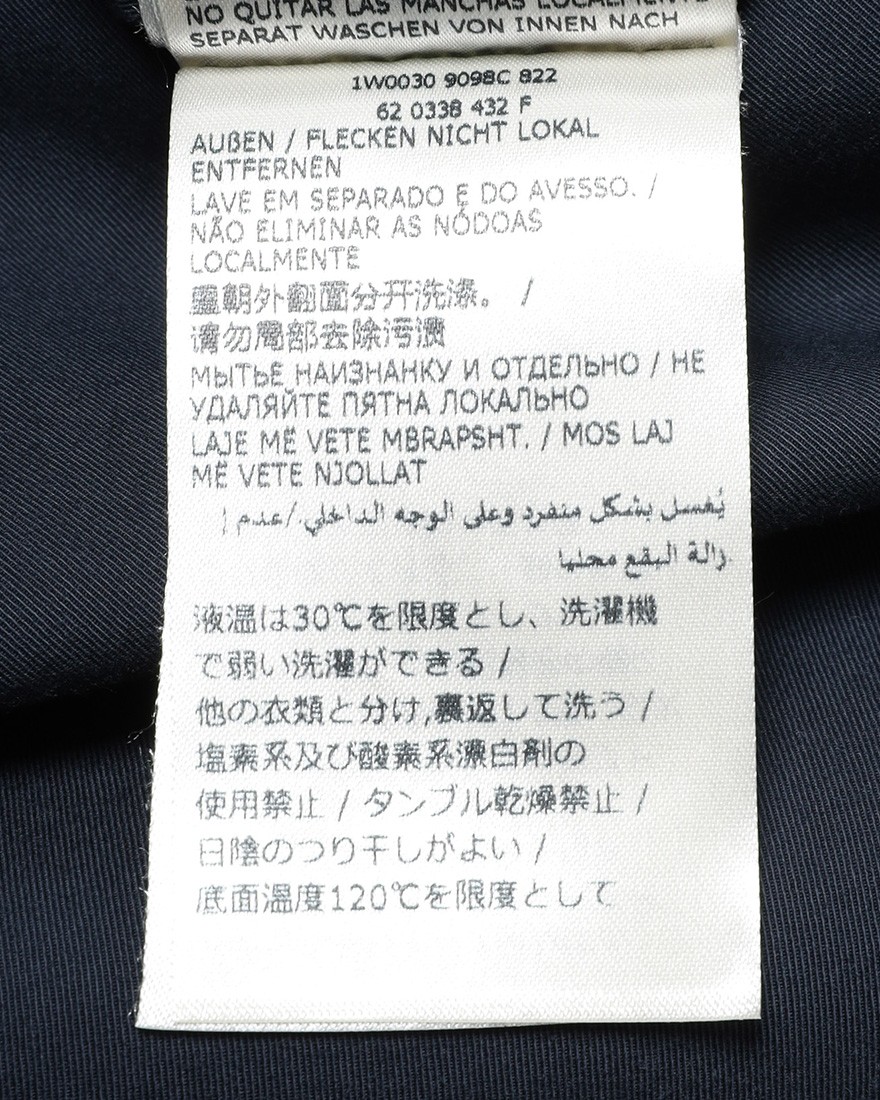 NO QUITAR LAS MANCHAS LOCALMENTE
SEPARAT WASCHEN VON INNEN NACH
1W0030 9098C 822
62 0338 432 F
AUßEN / FLECKEN NICHT LOKAL
ENTFERNEN
LAVE EM SEPARADO E DO AVESSO. /
NÃO ELIMINAR AS NÓDOAS
LOCALMENTE
里朝外翻面分开洗涤。 /
请勿局部去除污渍
МЫТЬЕ НАИЗНАНКУ И ОТДЕЛЬНО / НЕ
УДАЛЯЙТЕ ПЯТНА ЛОКАЛЬНО
LAJE MË VETE MBRAPSHT. / MOS LAJ
MË VETE NJOLLAT
يُغسل بشكل منفرد وعلى الوجه الداخلي./عدم إ
زالة البقع محليا
液温は30℃を限度とし、洗濯機
で弱い洗濯ができる /
他の衣類と分け,裏返して洗う /
塩素系及び酸素系漂白剤の
使用禁止 / タンブル乾燥禁止 /
日陰のつり干しがよい /
底面温度120℃を限度として